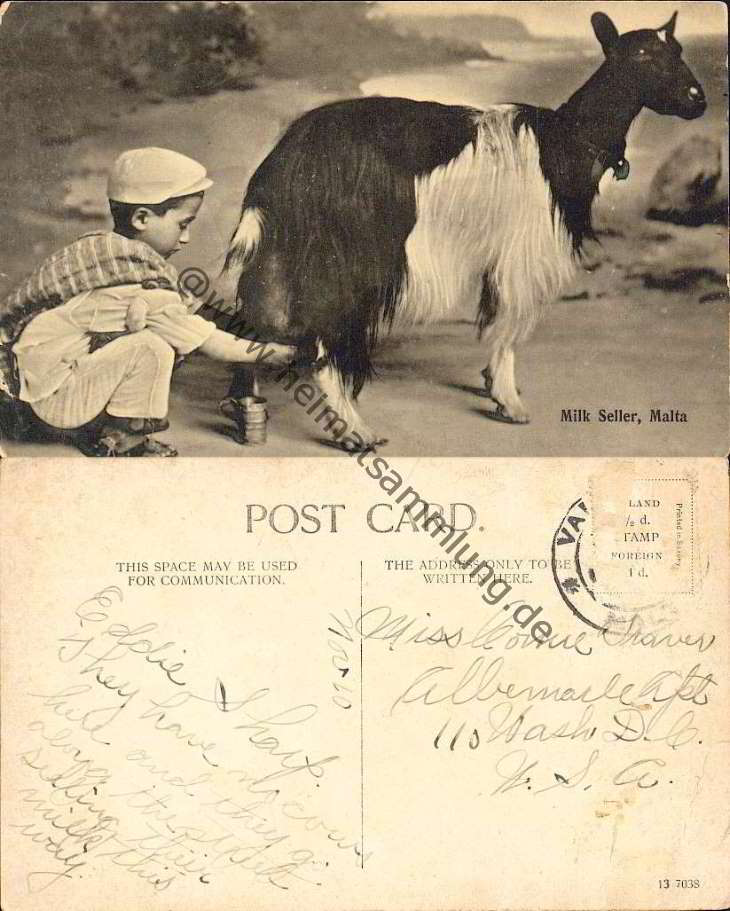 Milk Seller, Malta
@www.heimatsammlung.de
POST CARD
THIS SPACE MAY BE USED
FOR COMMUNICATION.
THE ADDRESS ONLY TO BE
WRITTEN HERE.
LAND
½ d.
STAMP
FOREIGN
1 d.
Printed in Saxony.
VA
Nov 10
Eddie Sharp.
They have no cows
here and they go
along the street
selling their
milk this
way.
Miss Connie Shaver
Albemarle Apt
110 Wash D.C.
U.S.A.
13 7038